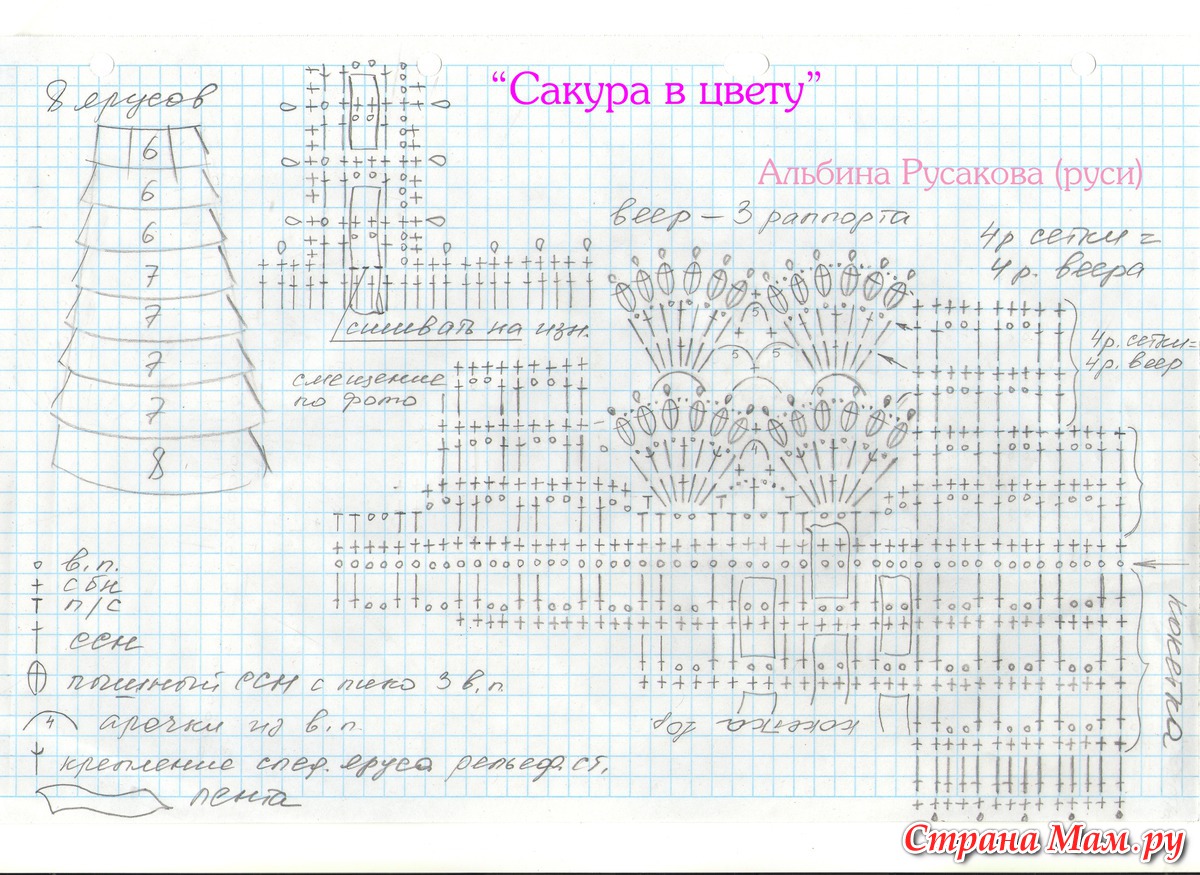 "Сакура в цвету"
8 ярусов
Альбина Русакова (руси)
веер – 3 раппорта
4р сетки =
4 р. веера
6
6
6
7
7
7
7
8
сшивать на изн.
4р. сетки =
4р. веер
смещение
по фото
5
5
5
4
в.п.
сбн
п/с
ссн
пышный ссн с пико 3 в.п
4 арочки из в.п.
крепление след. яруса рельеф. ст.
лента
кокетка
кокетка
Страна Мам.ру